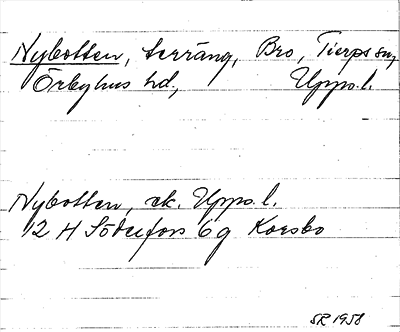 Nybotten, terräng, Bro, Tierps sn,
Örbyhus hd, Upps.l.
Nybotten, ek. Upps.l.
12 H Söderfors 6g Korsbo
SR 1958